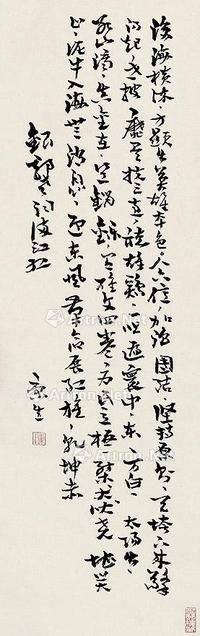 沧海横流方顯出英雄本色人六億加强團结坚持原則天垮下来擎
得起世披靡矣扶之直聽雄鷄一唱遍寰中东方白太陽出
冰山滴真金在豈銷鑠有雄文四卷为民立极桀犬吠尧堪笑
止泥牛入海無消息迎东風革命展红旗乾坤赤
録郭老词满江红
康生
Ar®Artron.Net